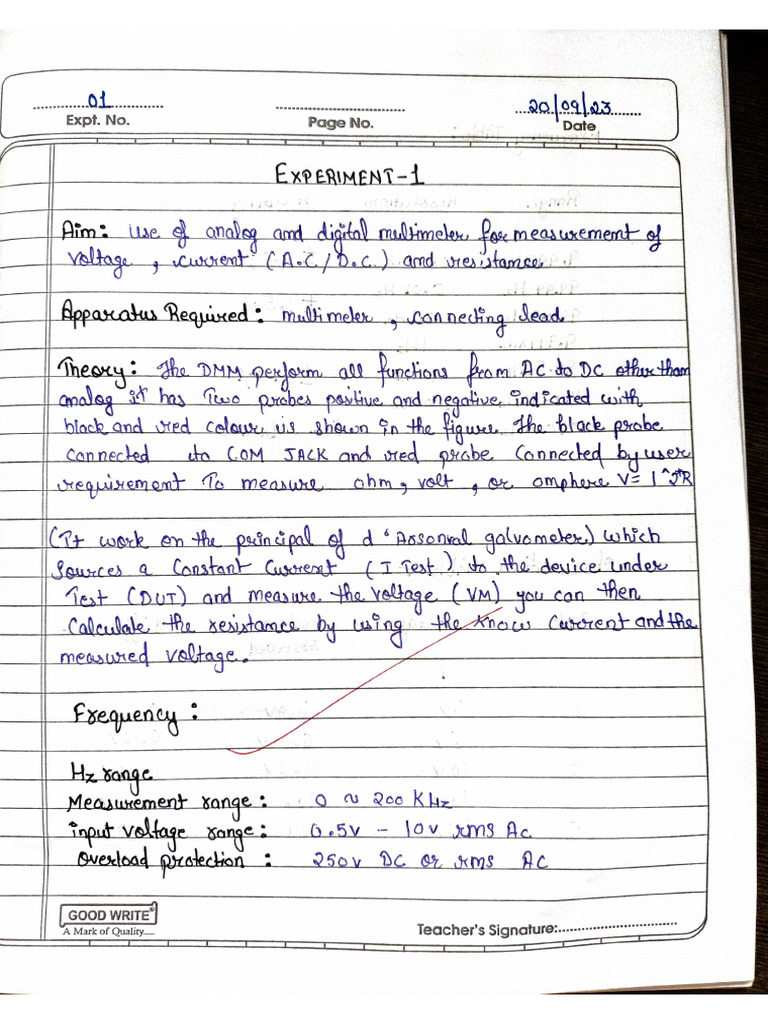 01
20/09/23
Expt. No.
Page No.
Date
EXPERIMENT-1
Aim: Use of analog and digital multimeter for measurement of
voltage, current (A.C/D.C.) and resistance
Apparatus Required: multimeter, connecting lead
Theory: The DMM perform all functions from AC to DC other than
analog it has Two probes positive and negative, indicated with
black and red colour is shown in the figure. The black probe
connected to COM JACK and red probe Connected by user
requirement To measure ohm, volt, or omphere V= I^2*R
(It work on the principal of d'Assonval galvometer) which
Sources a Constant Current (I Test) to the device under
Test (DUT) and measure the voltage (VM) you can then
Calculate the resistance by using the know current and the
measured voltage.
Frequency:
Hz range
Measurement range: 0 ≈ 200 KHz
input voltage range: 0.5v - 10v rms Ac
Overload protection: 250v DC or rms AC
GOOD WRITE
A Mark of Quality.....
Teacher's Signature: